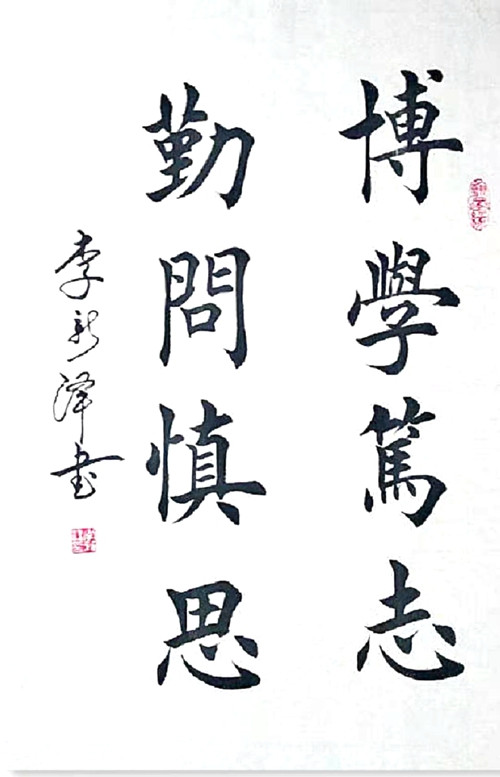 博學篤志
勤問慎思
李新澤書